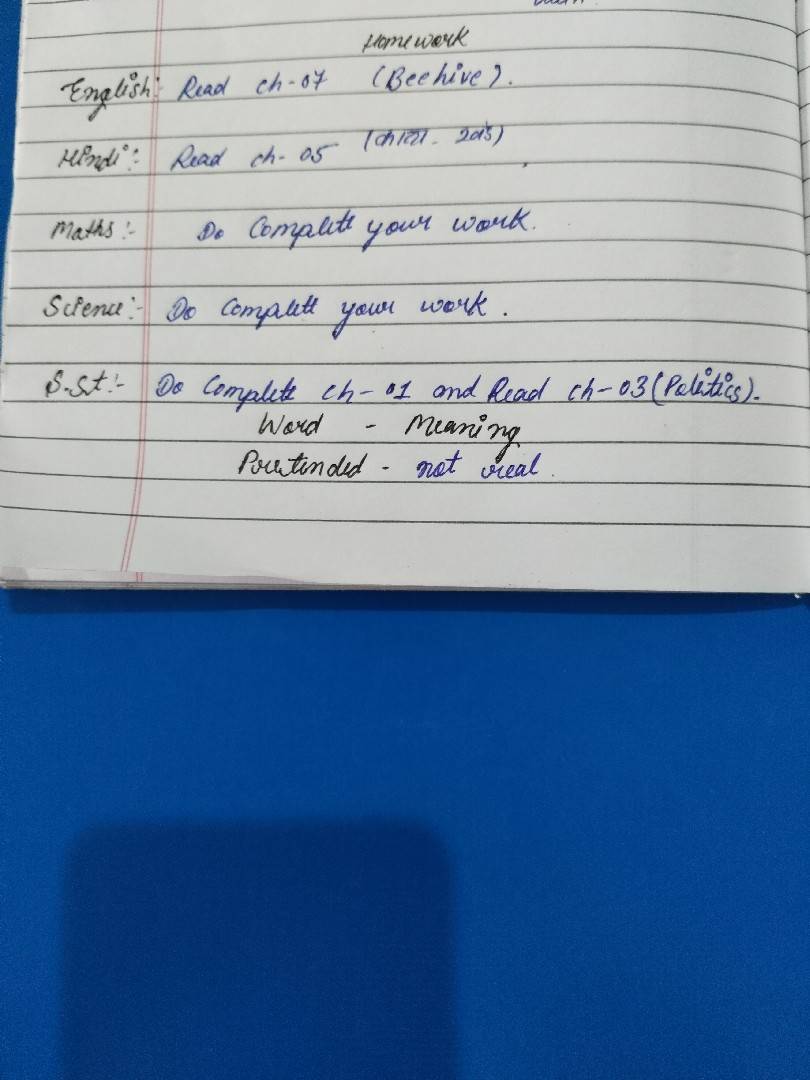 Homework
English:- Read ch-07 (Beehive).
Hindi:- Read ch- 05
Maths:- Do Complete your work.
Science:- Do Complete your work.
S.St:- Do Complete ch-01 and Read ch-03 (Politics).
Word - Meaning
Pretended - not real.